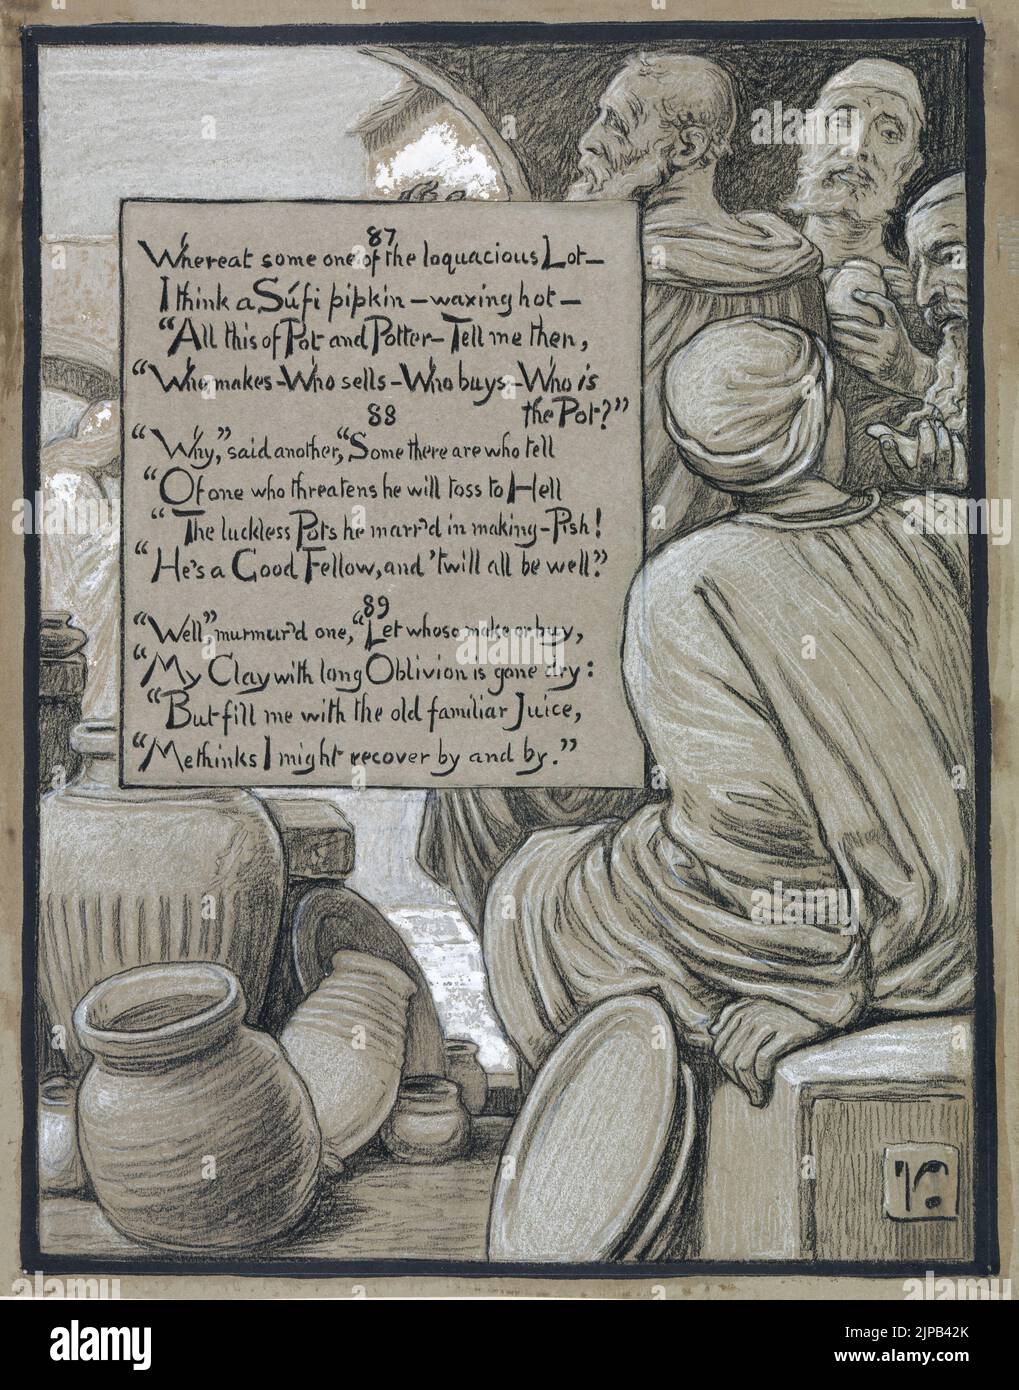 87
Whereat some one of the loquacious Lot—
I think a Súfi pipkin—waxing hot—
"All this of Pot and Potter—Tell me then,
"Who makes—Who sells—Who buys—Who is
the Pot?"
88
"Why," said another, "Some there are who tell
"Of one who threatens he will toss to Hell
"The luckless Pots he marr'd in making—Pish!
"He's a Good Fellow, and 'twill all be well."
89
"Well," murmur'd one, "Let whoso make or buy,
"My Clay with long Oblivion is gone dry:
"But fill me with the old familiar Juice,
"Methinks I might recover by and by."
alamy
Image ID: 2JPB42K
www.alamy.com